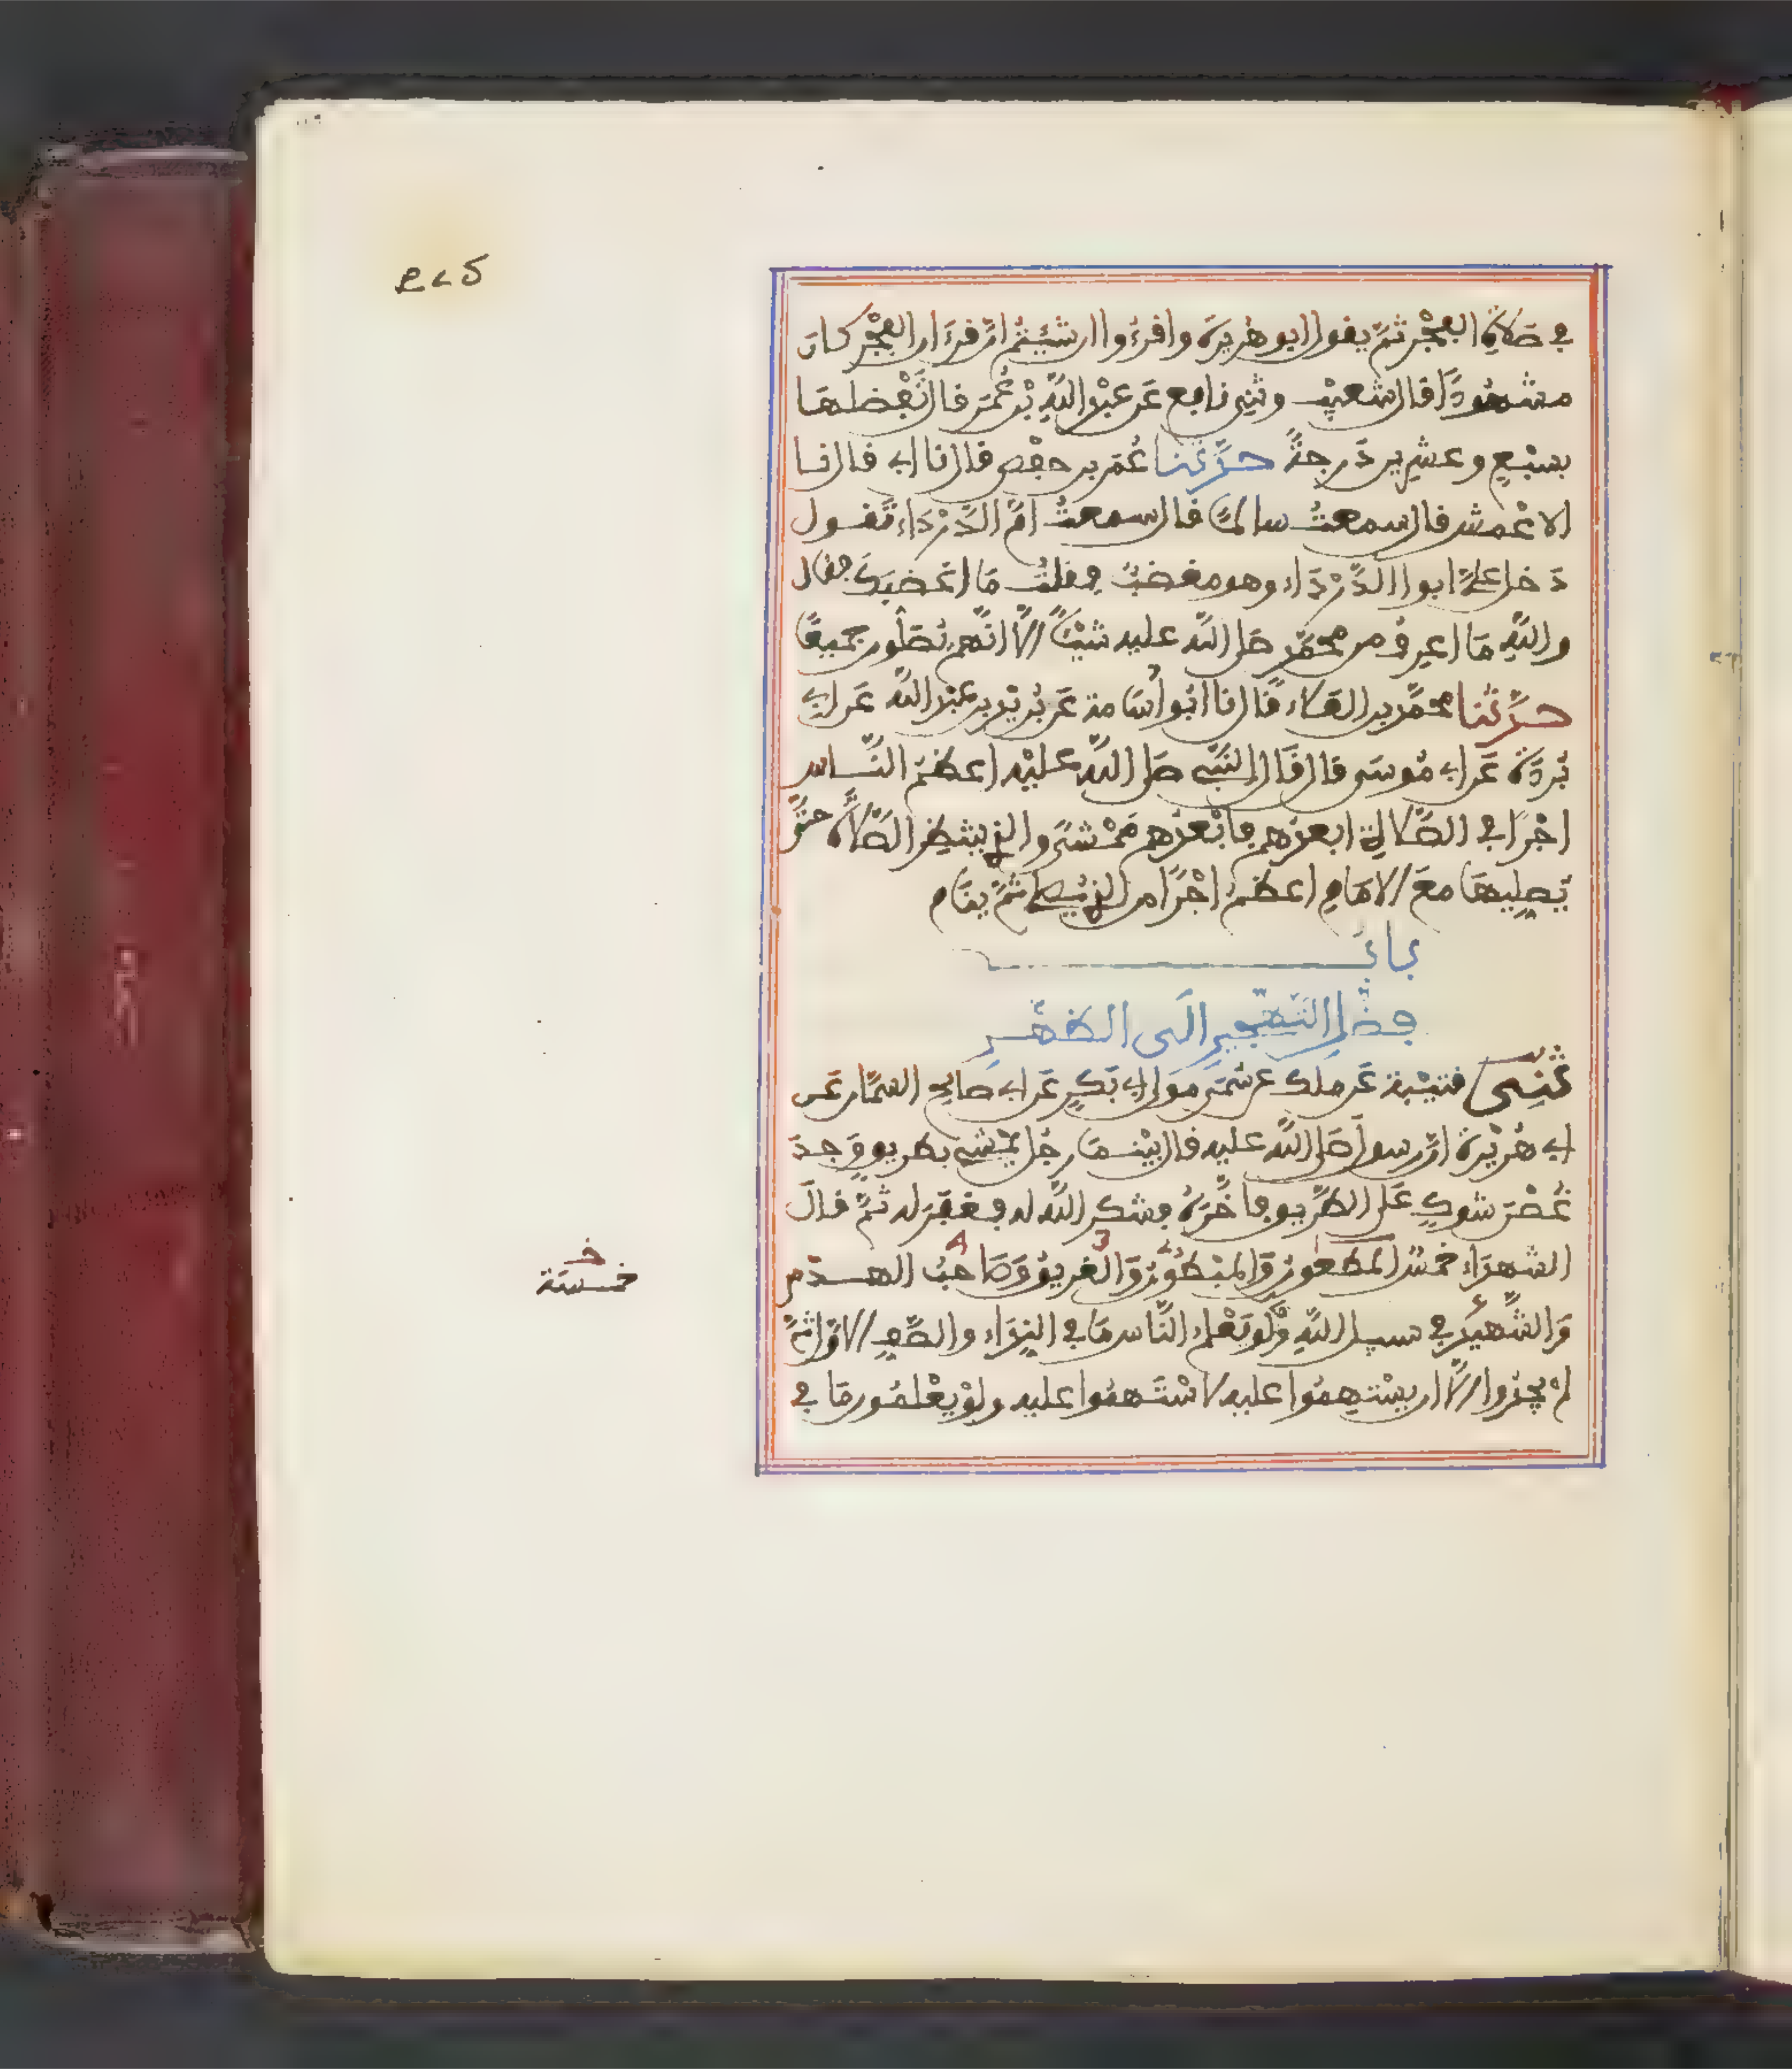 في صَلاةِ الفَجْرِ ثمَّ يقول ابو هُريرة وافرءوا ان شئتم انَّ قرءَان الفَجْر كان
مشهُودًا قال شعيبٌ وثنِي نافِع عَن عبْدِ اللَّهِ بْن عُمَر قال تَفْضُلهَا
بسبْعٍ وعشرِين دَرجةً حدَّثنا عُمَر بن حفْص قال نا ابي قال نا
الاعْمش قال سمعتُ سالمًا قال سمعتُ امَّ الدَّرْدَاء تقول
دَخل عليَّ ابو الدَّرْدَاء وهو مغضبٌ فقلتُ مَا اغضبَك فقال
واللَّهِ مَا اعرِفُ من محمَّدٍ صلى اللَّه عليه شيْئًا الَّا انَّهم يُصَلُّون جميعًا
حدَّثنا محمَّد بن العَلاء قَال نا ابُو اُسَامة عَن بُريْد بن عبْد اللَّه عَن ابي
بُردَة عَن ابي مُوسَى قال قَال النَّبي صلى اللَّه عليْه اعظمُ النَّاس
اجْرًا في الصَّلاة ابعدُهم فابْعدُهم مَمْشًى والذي ينتظِر الصَّلاة حتَّى
يُصلِيهَا معَ الامَامِ اعظمُ اجْرًا من الذي يُصلي ثمَّ ينَام
بابُ
فضْلِ التَّهجيرِ الَى الظهْرِ
ثنِي قتيْبة عَن ملك عن سُمَيٍّ مَولى ابي بَكرٍ عَن ابي صالح السمَّان عَن
ابي هُرَيْرة انَّ رسول صَلى اللَّه عليه قال بيْنمَا رجُل يمْشي بطريق وَجدَ
غُصْن شوكٍ عَلى الطَّريق فاخَّرَهُ فشكر اللَّه له فغفَرَ له ثمَّ قال
الشهدَاء خمسٌ المَطعون وَالمبْطُون وَالغريق وَصَاحبُ الهدْم
وَالشَّهيدُ في سبيل اللَّهِ وَلَو يَعْلم النَّاس مَا في النِدَاء والصَّفِ الاوَّل ثمَّ
لم يجدُوا الَّا ان يسْتهِمُوا عليه لاسْتَهمُوا عليه ولوْ يعْلمُون مَا في
خ
خمسَة